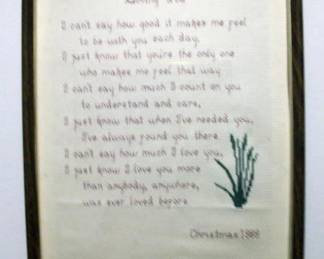 Loving You
I can't say how good it makes me feel
to be with you each day,
I just know that you're the only one
who makes me feel that way
I can't say how much I count on you
to understand and care,
I just know that when I've needed you,
I've always found you there
I can't say how much I love you,
I just know I love you more
than anybody, anywhere,
was ever loved before
Christmas 1988